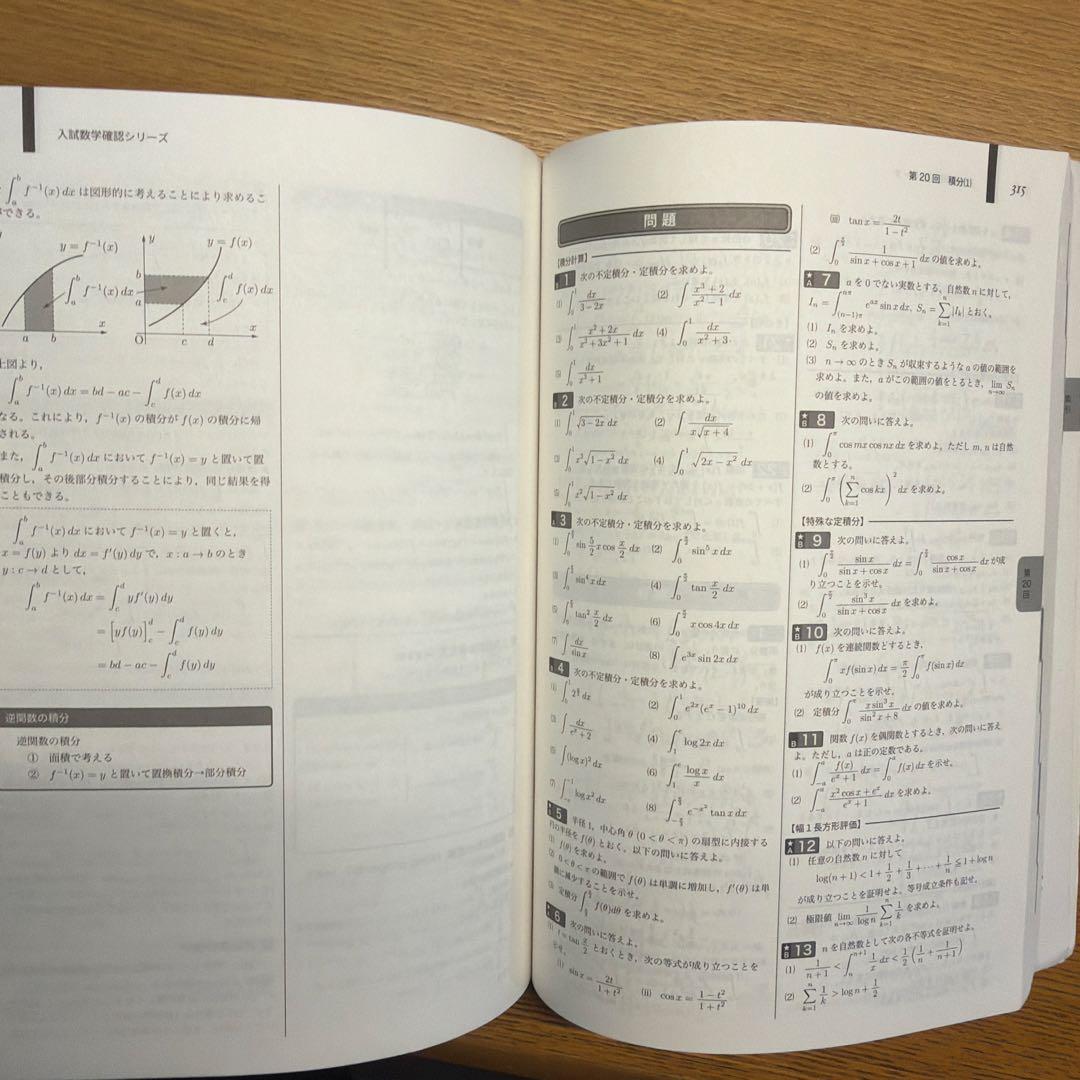 入試数学確認シリーズ
∫_a^b f⁻¹(x) dx は図形的に考えることにより求めるこ
できる。
y = f⁻¹(x)
∫_a^b f⁻¹(x) dx
a b x
y
y = f(x)
b
a
∫_c^d f(x) dx
O c d x
上図より,
∫_a^b f⁻¹(x) dx = bd − ac − ∫_c^d f(x) dx
なる。これにより, f⁻¹(x) の積分が f(x) の積分に帰
される。
また, ∫_a^b f⁻¹(x) dx において f⁻¹(x) = y と置いて置
積分し, その後部分積分することにより, 同じ結果を得
こともできる。
∫_a^b f⁻¹(x) dx において f⁻¹(x) = y と置くと,
x = f(y) より dx = f′(y) dy で, x : a → b のとき
y : c → d として,
∫_a^b f⁻¹(x) dx = ∫_c^d yf′(y) dy
= [yf(y)]_c^d − ∫_c^d f(y) dy
= bd − ac − ∫_c^d f(y) dy
逆関数の積分
逆関数の積分
① 面積で考える
② f⁻¹(x) = y と置いて置換積分→部分積分
第20回 積分(1)
315
問題
【積分計算】
1 次の不定積分・定積分を求めよ。
(1) ∫_0^1 dx/(3−2x) (2) ∫ (x³+2)/(x²−1) dx
(3) ∫_0^1 (x²+2x)/(x³+3x²+1) dx (4) ∫_0^1 dx/(x²+3)
(5) ∫_0^1 dx/(x³+1)
2 次の不定積分・定積分を求めよ。
(1) ∫_0^1 √(3−2x) dx (2) ∫ dx/(x√(x+4))
(3) ∫_0^1 x³√(1−x²) dx (4) ∫_0^1 √(2x−x²) dx
(5) ∫_0^1 x²√(1−x²) dx
3 次の不定積分・定積分を求めよ。
sin (5/2)x cos (x/2) dx (2) ∫_0^{π/2} sin⁵ x dx
sin⁴ x dx (4) ∫_0^{π/2} tan (x/2) dx
(5) tan² (x/2) dx (6) ∫_0^{π/2} x cos 4x dx
(7) ∫ dx/sin x (8) ∫ e^{3x} sin 2x dx
4 次の不定積分・定積分を求めよ。
(1) ∫_0^1 dx (2) ∫_0^1 e^{2x}(e^x − 1)^{10} dx
(3) ∫ dx/(e^x+2) (4) ∫_1^e log 2x dx
(5) ∫ (log x)² dx (6) ∫_1^e (log x)/x dx
(7) log x² dx (8) e^{−x²} tan x dx
5 半径1, 中心角 θ (0 < θ < π) の扇型に内接する
円の半径を f(θ) とおく。以下の問いに答えよ。
(1) f(θ) を求めよ。
(2) 0 < θ < π の範囲で f(θ) は単調に増加し, f′(θ) は単
調に減少することを示せ。
(3) 定積分 f(θ)dθ を求めよ。
6 次の問いに答えよ。
(1) t = tan (x/2) とおくとき, 次の等式が成り立つことを
示せ。
(i) sin x = 2t/(1+t²) (ii) cos x = (1−t²)/(1+t²)
(iii) tan x = 2t/(1−t²)
(2) ∫_0^{π/2} 1/(sin x + cos x + 1) dx の値を求めよ。
★A 7 a を 0 でない実数とする。自然数 n に対して,
I_n = ∫_{(n−1)π}^{nπ} e^{ax} sin x dx, S_n = Σ_{k=1}^n |I_k| とおく。
(1) I_n を求めよ。
(2) S_n を求めよ。
(3) n → ∞ のとき S_n が収束するような a の値の範囲を
求めよ。また, a がこの範囲の値をとるとき, lim_{n→∞} S_n
の値を求めよ。
★B 8 次の問いに答えよ。
(1) ∫_0^π cos mx cos nx dx を求めよ。ただし m, n は自然
数とする。
(2) ∫_0^π (Σ_{k=1}^n cos kx)² dx を求めよ。
【特殊な定積分】
★B 9 次の問いに答えよ。
(1) ∫_0^{π/2} sin x/(sin x + cos x) dx = ∫_0^{π/2} cos x/(sin x + cos x) dx が成
り立つことを示せ。
(2) ∫_0^{π/2} sin³ x/(sin x + cos x) dx を求めよ。
★B 10 次の問いに答えよ。
(1) f(x) を連続関数とするとき,
∫_0^π xf(sin x) dx = (π/2) ∫_0^π f(sin x) dx
が成り立つことを示せ。
(2) 定積分 ∫_0^π (x sin³ x)/(sin² x + 8) dx の値を求めよ。
B 11 関数 f(x) を偶関数とするとき, 次の問いに答え
よ。ただし, a は正の定数である。
(1) ∫_{−a}^a f(x)/(e^x+1) dx = ∫_0^a f(x) dx を示せ。
(2) ∫_{−a}^a (x² cos x + e^x)/(e^x+1) dx を求めよ。
【幅1長方形評価】
★A 12 以下の問いに答えよ。
(1) 任意の自然数 n に対して
log(n+1) < 1 + 1/2 + 1/3 + ⋯ + 1/n ≦ 1 + log n
が成り立つことを証明せよ。等号成立条件も記せ。
(2) 極限値 lim_{n→∞} (1/log n) Σ_{k=1}^n 1/k を求めよ。
★B 13 n を自然数として次の各不等式を証明せよ。
(1) 1/(n+1) < ∫_n^{n+1} (1/x) dx < (1/2)(1/n + 1/(n+1))
(2) Σ_{k=1}^n 1/k > log n + 1/2
第20回